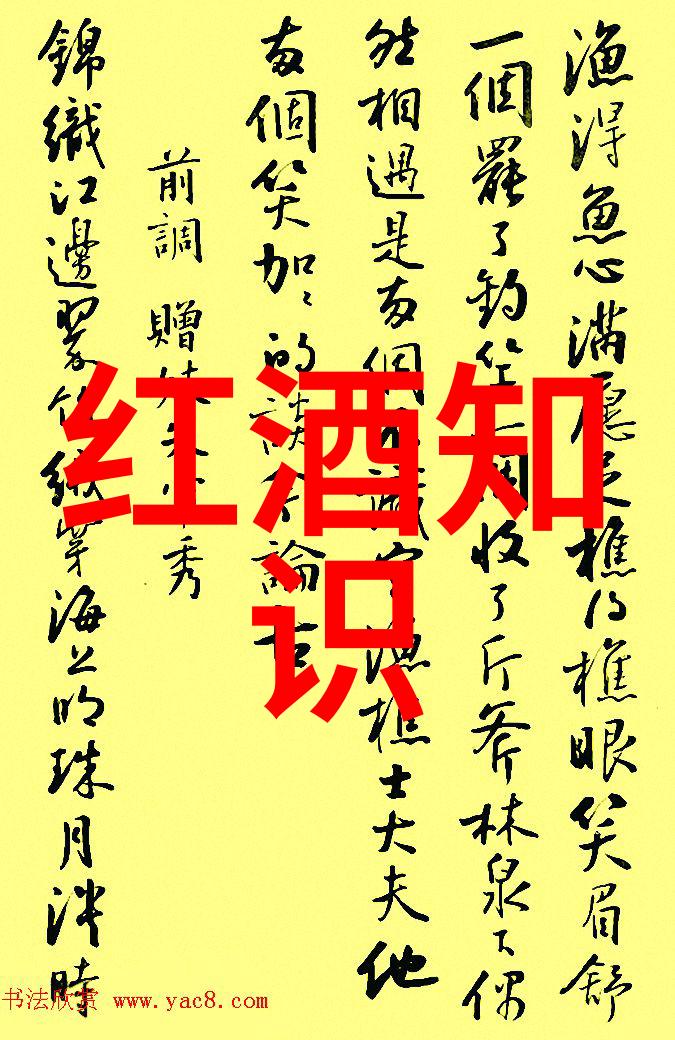 漁得魚心滿願足樵得樵眼笑眉舒
一個罷了釣竿一個收了斤斧林泉下偶
然相遇是兩個不識字漁樵士大夫他
兩個笑加〻的談今論古
前調 贈妓朱秀
錦織江邊翠竹絨穿海上明珠月淡時
红酒知
识
书法欣赏 www.yac8.com